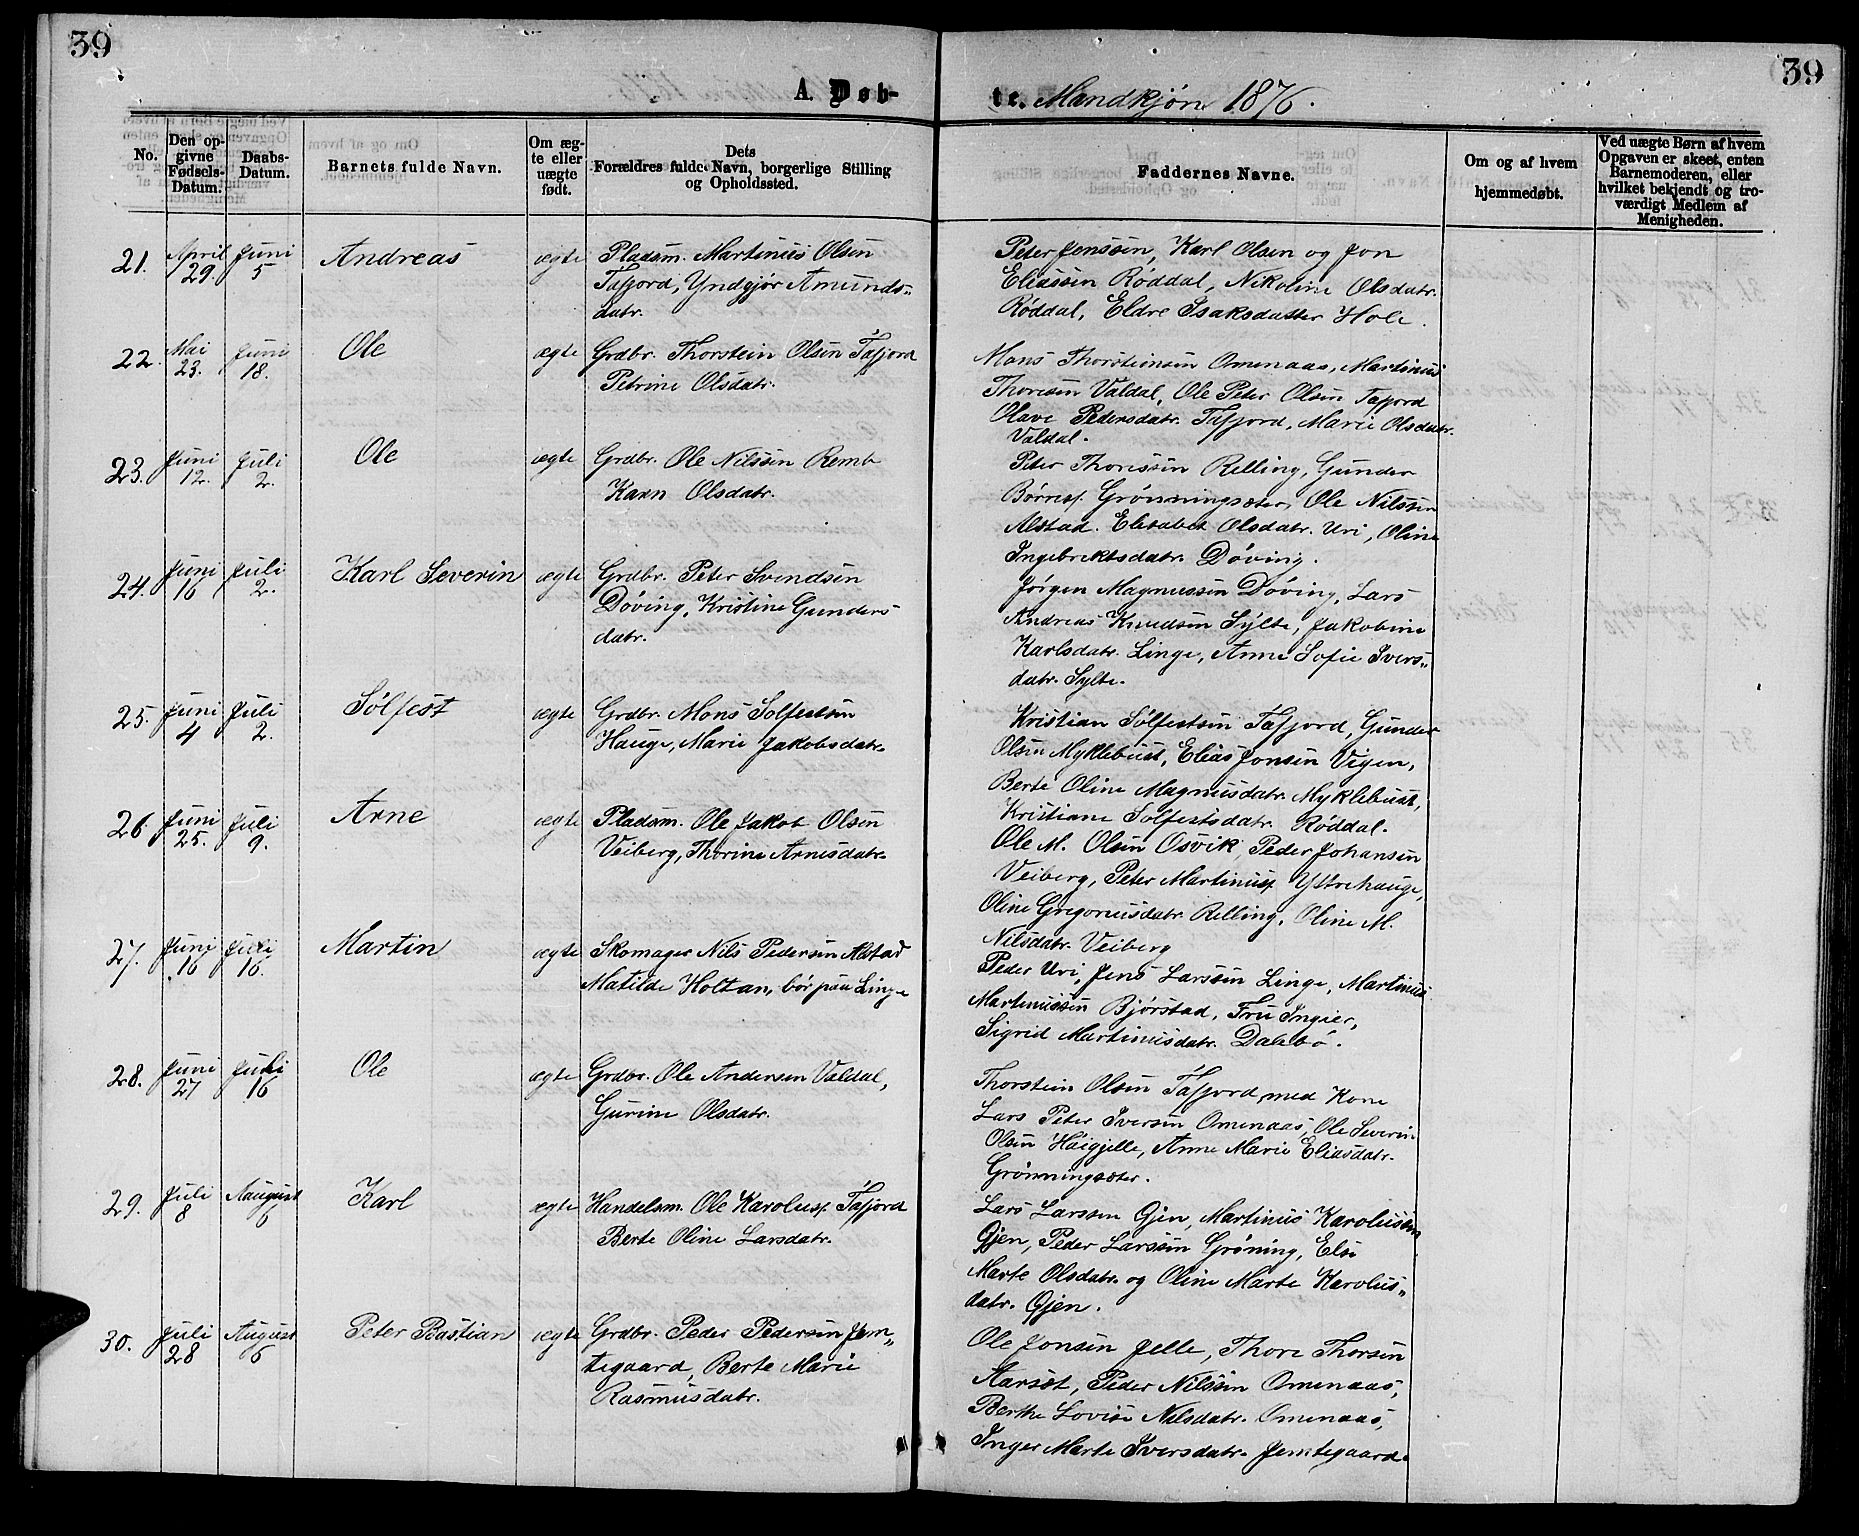 39
39
A. Døb-
te. Mandkjøn 1876.
No.
Den op-
givne
Fødsels-
Datum.
Daabs-
Datum.
Barnets fulde Navn.
Om æg-
te eller
uægte
født.
Dets
Forældres fulde Navn, borgerlige Stilling
og Opholdssted.
Faddernes Navne.
Om og af hvem
hjemmedøbt.
Ved uægte Børn af hvem
Opgaven er skeet, enten
Barnemoderen, eller
hvilket bekjendt og tro-
værdigt Medlem af
Menigheden.
21. April 29. Juni 5 Andreas ægte Pladsm. Martinus Olsen
Tafjord, Yndgjør Amunds-
datr.
Peter Jenssen, Karl Olsen og Jon
Eliassen Røddal, Nikoline Olsdatr.
Røddal, Eldre Isaksdatter Hole.
22. Mai 23. Juni 18. Ole ægte Grdbr. Thorstein Olsen Tafjord
Petrine Olsdatr.
Mons Thorsteinsen Omenaas, Martinus
Thoresen Valdal, Ole Peter Olsen Tafjord
Olave Pedersdatr. Tafjord, Marie Olsdatr.
Valdal.
23. Juni 12. Juli 2. Ole ægte Grdbr. Ole Nilssen Remb
Karn Olsdatr.
Peter Thoressen Relling, Gunder
Børresf. Grønningsæter, Ole Nilssen
Alstad. Elisabet Olsdatr. Uri, Oline
Ingebrektsdatr. Døving.
24. Juni 16 Juli 2. Karl Severin ægte Grdbr. Peter Svendsen
Døving, Kristine Gunders-
datr.
Jørgen Magnussen Døving, Lars
Andreas Knudsen Sylte, Jakobine
Karlsdatr. Linge, Anne Sofie Ivers-
datr. Sylte.
25. Juni 4 Juli 2. Sølfest ægte Grdbr. Mons Solfestsen
Hauge, Marie Jakobsdatr.
Kristian Sølfestsen Tafjord, Gunder
Olsen Myklebust, Elias Jonsen Vigen,
Berte Oline Magnusdatr. Myklebust,
Kristiane Solfestsdatr. Røddal.
26 Juni 25. Juli 9. Arne ægte Pladsm. Ole Jakob Olsen
Veiberg, Thorine Arnesdatr.
Ole M. Olsen Osvik, Peder Johansen
Veiberg, Peter Martinusf. Yttrehauge,
Oline Gregoriusdatr. Relling, Oline M.
Nilsdatr. Veiberg
27. Juni 16 Juli 16. Martin ægte Skomager Nils Pedersen Alstad
Matilde Holtan, bor paa Linge
Peder Uri, Jens Larssen Linge, Martinus
Martinussen Bjørstad, Fru Ingier,
Sigrid Martinusdatr. Dalebø.
28. Juni 27 Juli 16 Ole ægte Grdbr. Ole Andersen Valdal,
Gurine Olsdatr.
Thorstein Olsen Tafjord med Kone
Lars Peter Iversen Omenaas, Ole Severin
Olsen Høigjelle, Anne Marie Eliasdatr.
Grønningsæter.
29. Juli 8 Aaugust 6 Karl ægte Handelsm. Ole Karolusf. Tafjord
Berte Oline Larsdatr.
Lars Larssen Gjen, Martinus Karolusen
Gjen, Peder Larssen Grøning, Else
Marte Olsdatr. og Oline Marte Karolus-
datr. Gjen.
30. Juli 28 August 6 Peter Bastian ægte Grdbr. Peder Pedersen Jem-
tegaard, Berte Marie
Rasmusdatr.
Ole Jonsen Jelle, Thore Thorsen
Aarset, Peder Nilssen Omenaas,
Berthe Lovise Nilsdatr. Omenaas,
Inger Marte Iversdatr. Jemtegaard.